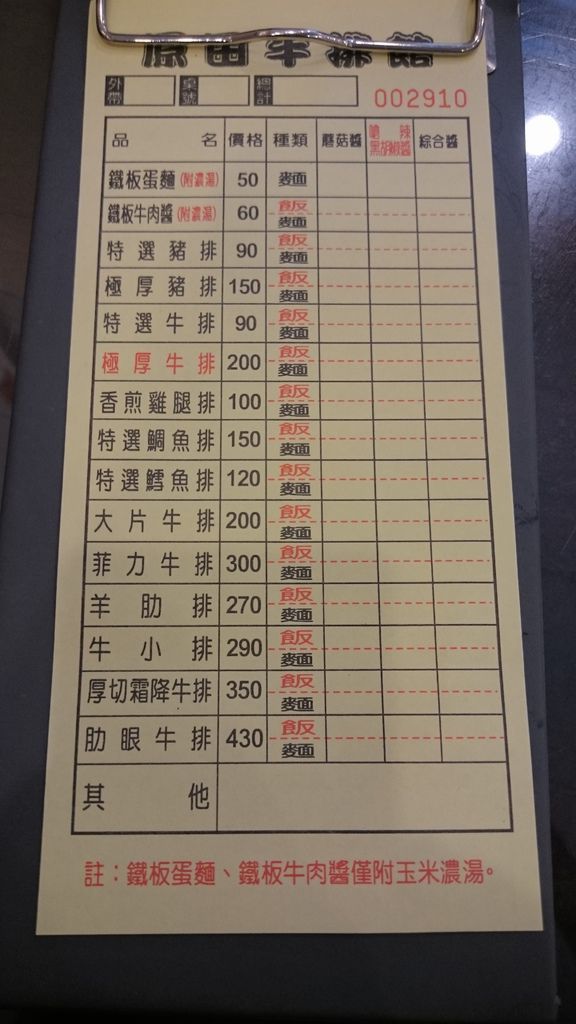 原田牛排館
外帶 桌號 總計 002910
品名 價格 種類 蘑菇醬 嗆辣黑胡椒醬 綜合醬
鐵板蛋麵(附濃湯) 50 麥面
鐵板牛肉醬(附濃湯) 60 飯 麥面
特選豬排 90 飯 麥面
極厚豬排 150 飯 麥面
特選牛排 90 飯 麥面
極厚牛排 200 飯 麥面
香煎雞腿排 100 飯 麥面
特選鯛魚排 150 飯 麥面
特選鱈魚排 120 飯 麥面
大片牛排 200 飯 麥面
菲力牛排 300 飯 麥面
羊肋排 270 飯 麥面
牛小排 290 飯 麥面
厚切霜降牛排 350 飯 麥面
肋眼牛排 430 飯 麥面
其他
註：鐵板蛋麵、鐵板牛肉醬僅附玉米濃湯。